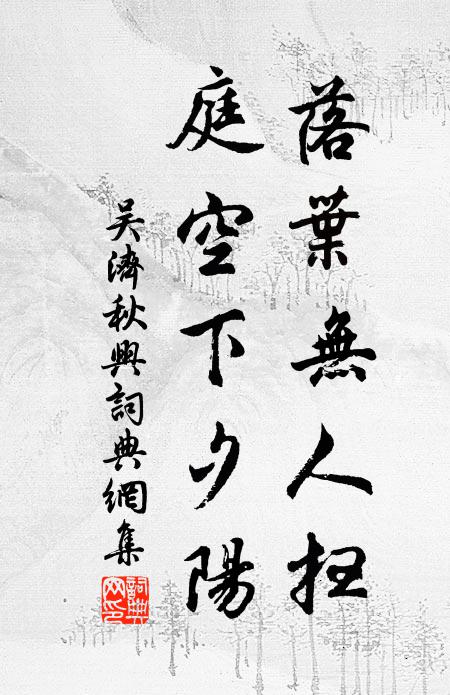 落葉無人扫
庭空下夕陽
吴濟秋興詞典網集
詞典
网印